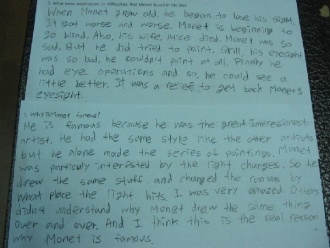 When Monet grew old he began to lose his sight.
It got worse and worse. Monet is beginning to
go blind. Also, his wife, Alice died. Monet was so
sad. But he did tried to paint. Still his eyesight
was so bad, he couldn't paint at all. Finally he
had eye operations and so, he could see a
little better. It was a relief to get back Monet's
eyesight.
Why is Monet famous?
He is famous because he was the great impressionist
artist. He had the same style like the other artists
but he alone made the series of paintings. Monet
was particuly interested by the light changes. So he
drew the same stuff and changed the canvas by
what place the light hits. I was very amazed. Others
didn't understand why Monet drew the same thing
over and over. And I think this is the real reason
why Monet is famous.